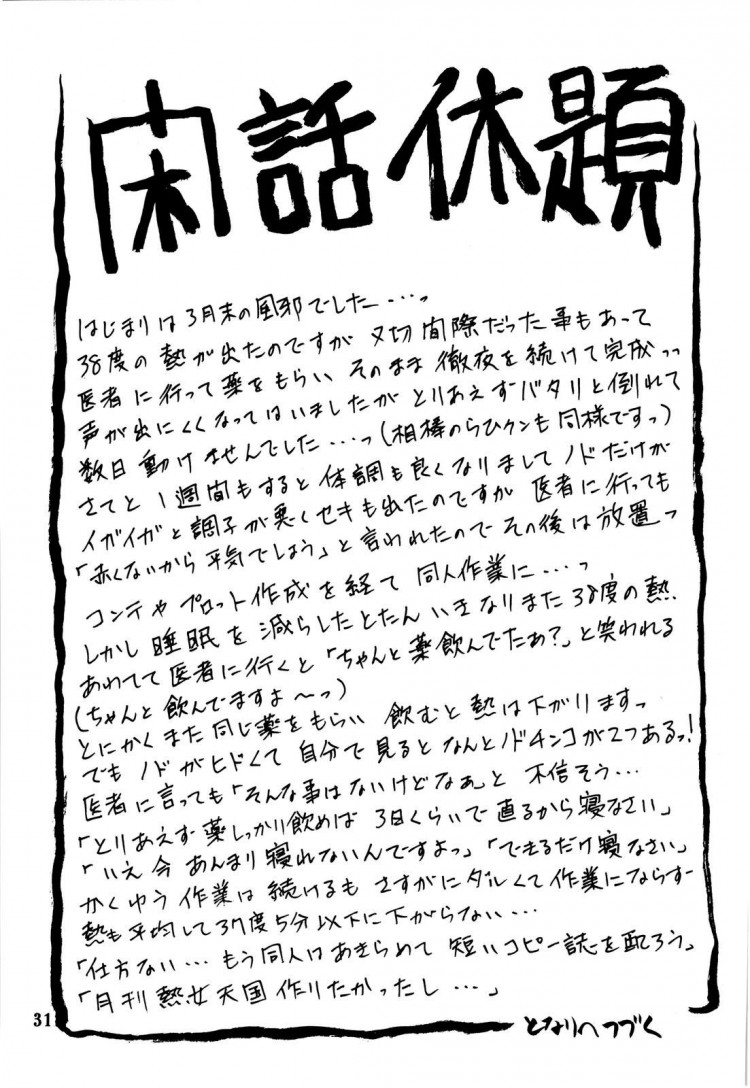 閑話休題
はじまりは3月末の風邪でした…っ
38度の熱が出たのですが 〆切間際だった事もあって
医者に行って薬をもらい そのまま徹夜を続けて完成っっ
声が出にくくなってはいましたが とりあえずバタリと倒れて
数日動けませんでした…っ(相棒のらひクンも同様ですっ)
さてと 1週間もすると体調も良くなりまして ノドだけが
イガイガと調子が悪くセキも出たのですが 医者に行っても
「赤くないから平気でしょう」と言われたので その後は放置っ
コンテや プロット作成を経て 同人作業に…っ
しかし睡眠を減らしたとたん いきなりまた38度の熱
あわてて医者に行くと「ちゃんと薬飲んでたぁ?」と笑われる
(ちゃんと飲んでますよ〜っ)
とにかくまた同じ薬をもらい 飲むと熱は下がりますっ
でもノドがヒドくて 自分で見ると なんとノドチンコが2つあるっ!
医者に言っても「そんな事はないけどなぁ」と 不信そう…
「とりあえず薬しっかり飲めば 3日くらいで直るから寝なさい」
「いえ今 あんまり寝れないんですよっ」「できるだけ寝なさい」
かくゆう作業は続けるも さすがにダルくて作業にならず
熱も平均して37度5分以下に下がらない…
「仕方ない…もう同人はあきらめて 短いコピー誌を配ろう」
「月刊熱女天国作りたかったし…」
となりへつづく
31